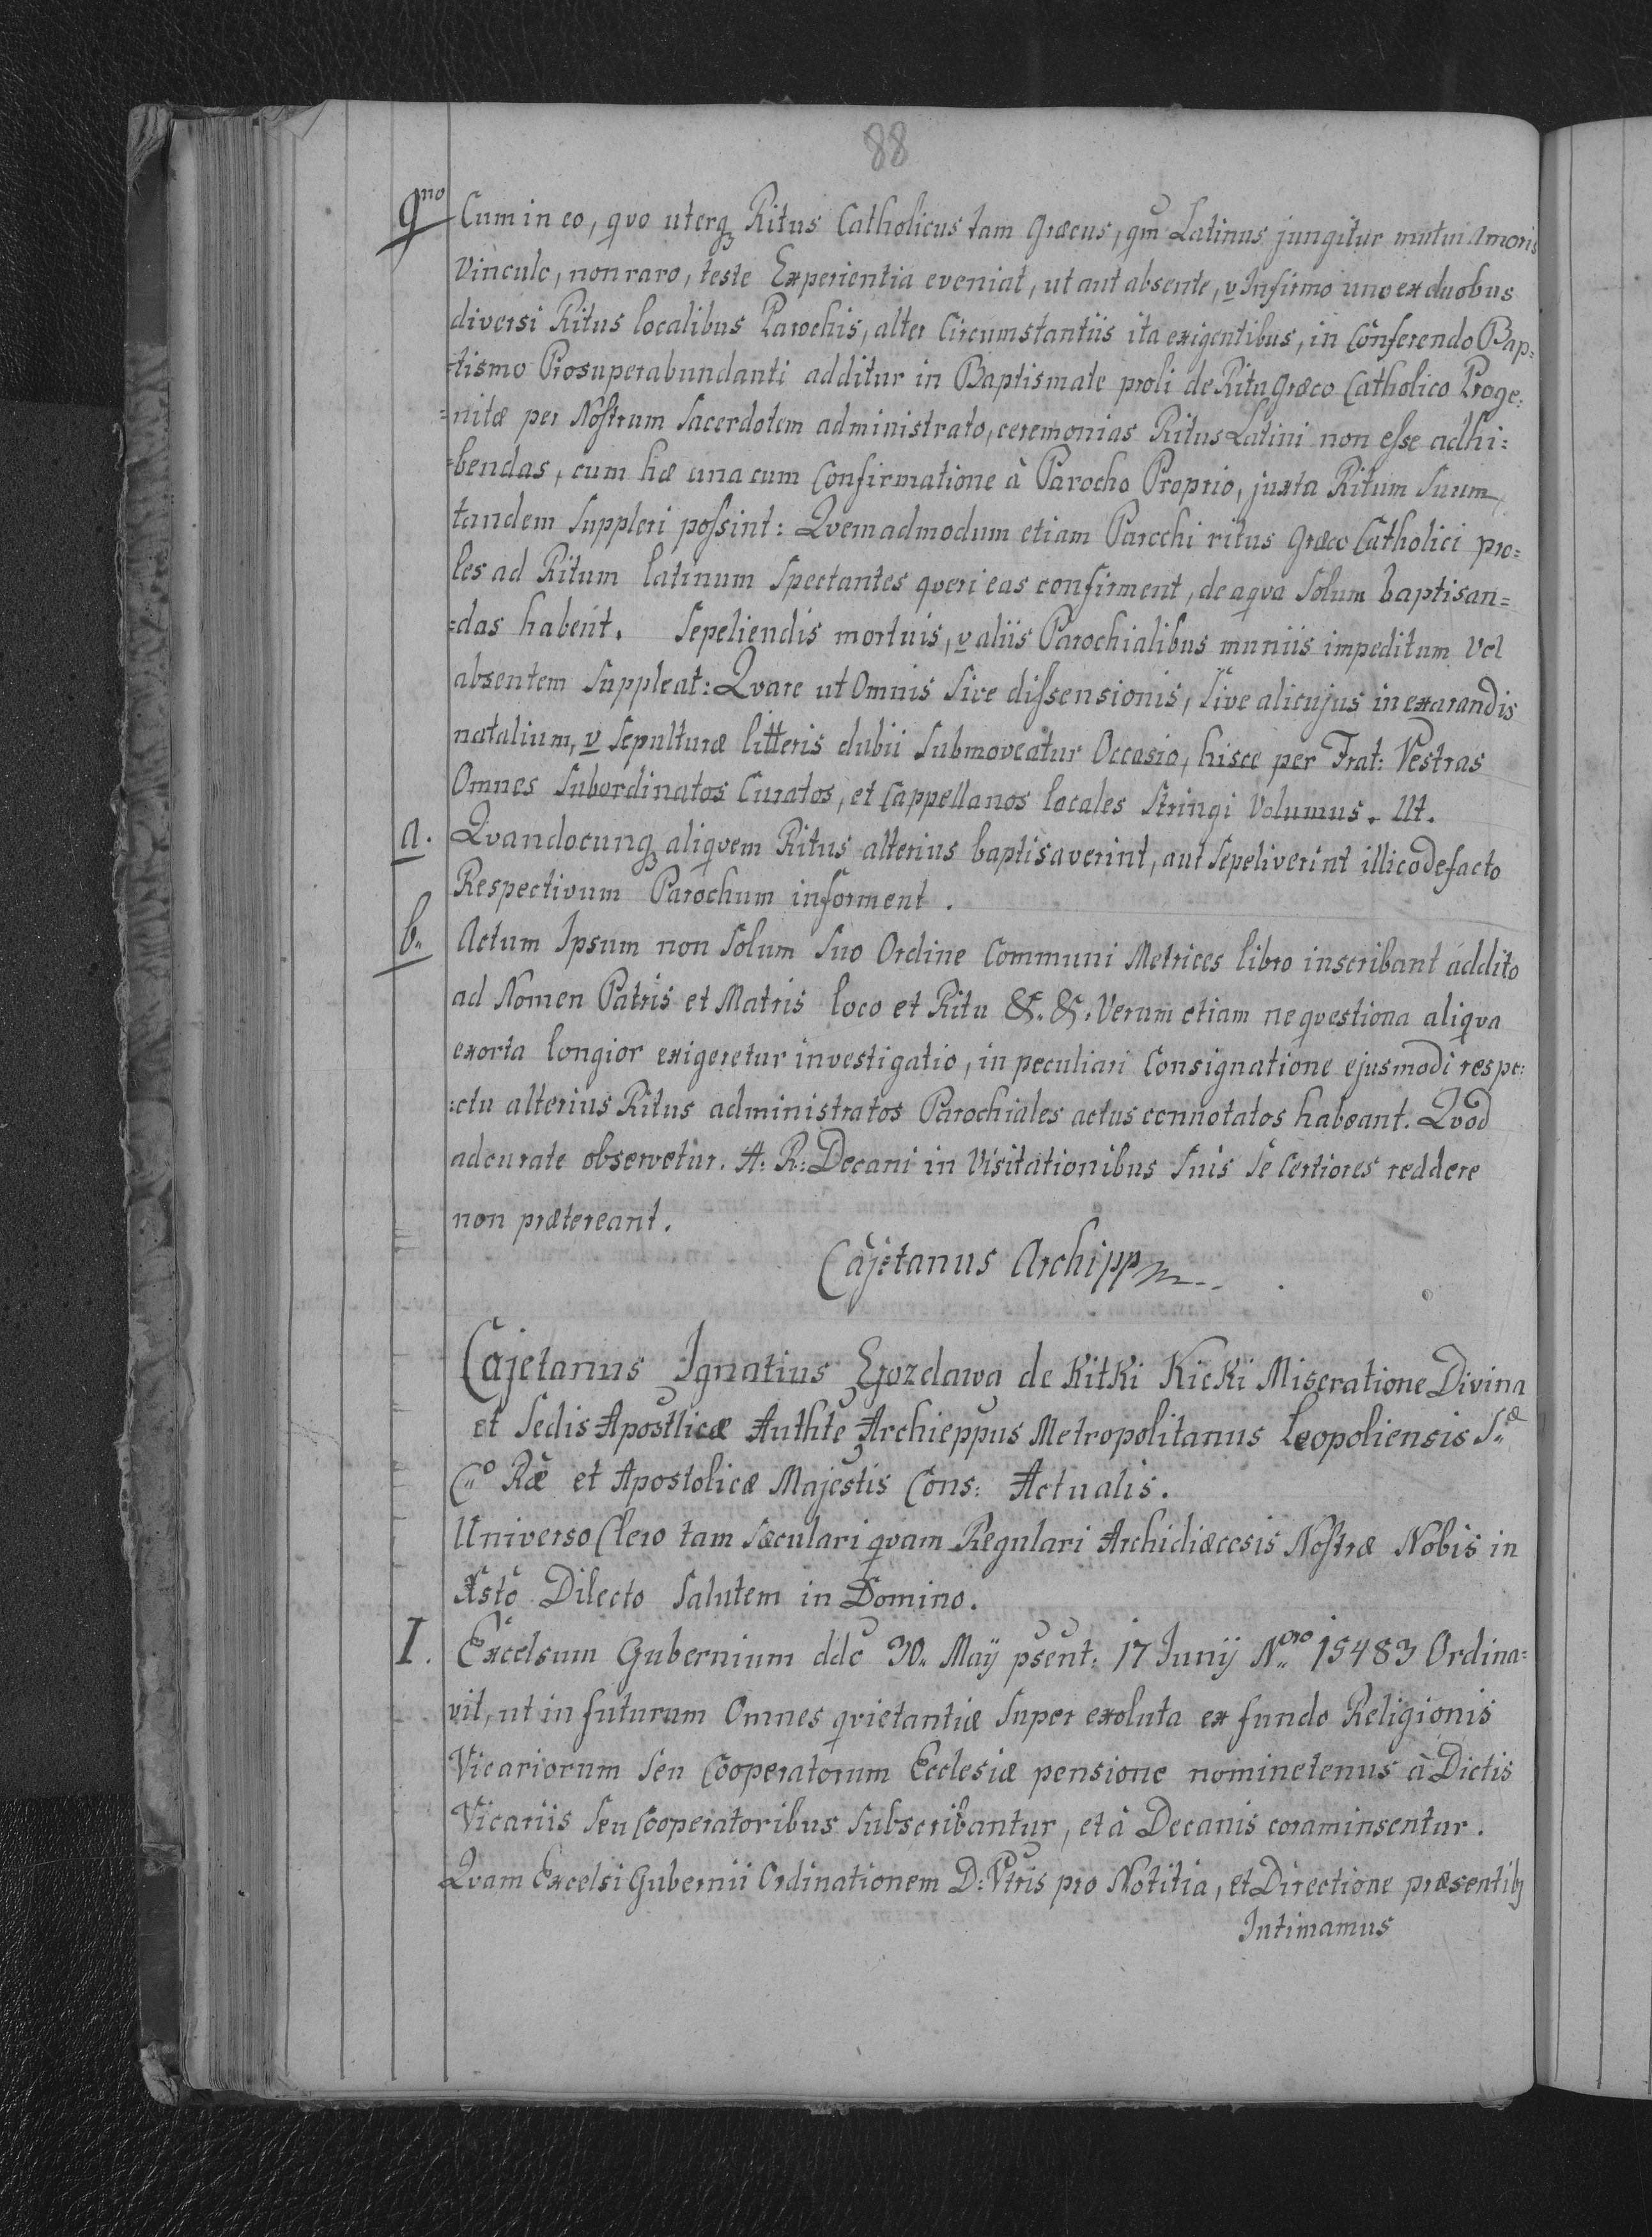 88
9no Cum in eo, qvo uterq Ritus Catholicus tam Græcus, qm Latinus jungitur mutui Amoris
vinculo, non raro, teste Experientia eveniat, ut aut absente, v Infirmo uno ex duobus
diversi Ritus localibus Parochis, alter Circumstantiis ita exigentibus, in Conferendo Bap=
=tismo Prosuperabundanti additur in Baptismate proli de Ritu Græco Catholico Proge:
=nitæ per Nostrum Sacerdotem administrato, ceremonias Ritus Latini non esse adhi:
=bendas, cum hæ una cum Confirmatione à Parocho Proprio, juxta Ritum Suum
tandem Suppleri possint: Qvemadmodum etiam Parochi ritus Græco Catholici pro=
les ad Ritum latinum Spectantes qvin eas confirment, de aqva Solum baptisan=
=das habent. Sepeliendis mortuis, v aliis Parochialibus muniis impeditum vel
absentem Suppleat: Qvare ut Omnis Sive dissensionis, Sive alicujus in exarandis
natalium, v Sepulturæ litteris dubii Submoveatur Occasio, hisce per Frat: Vestras
Omnes Subordinatos Curatos, et Cappellanos locales Stringi Volumus. Ut.
a. Qvandocunq aliqvem Ritus alterius baptisaverint, aut Sepeliverint illico defacto
Respectivum Parochum informent.
b. Actum Ipsum non Solum Suo Ordine Communi Metrices libro inscribant addito
ad Nomen Patris et Matris loco et Ritu &. &. Verum etiam ne qvestiona aliqva
exorta longior exigeretur investigatio, in peculiari Consignatione ejusmodi respe:
:ctu alterius Ritus administratos Parochiales actus connotatos habeant. Qvod
adcurate observetur. A: R: Decani in Visitationibus Suis Se Certiores reddere
non prætereant.
Cajetanus Archipp
Cajetanus Ignatius Gozdawa de Kitki Kicki Miseratione Divina
et Sedis Apostlicæ Authte Archieppus Metropolitanus Leopoliensis S.æ
C.o Ræ et Apostolicæ Majestis Cons: Actualis.
Universo Clero tam Sæculari qvam Regulari Archidiæcesis Nostræ Nobis in
Xsto Dilecto Salutem in Domino.
I. Excelsum Gubernium ddo 30. Maÿ psent: 17 Junÿ N.ro 15483 Ordina=
vit, ut in futurum Omnes qvietantiæ Super exoluta ex fundo Religionis
Vicariorum Seu Cooperatorum Ecclesiæ pensione nominetenus à Dictis
Vicariis Seu Cooperatoribus Subscribantur, et à Decanis coraminsentur.
Qvam Excelsi Gubernii Ordinationem D: Vtris pro Notitia, et Directione præsentib
Intimamus